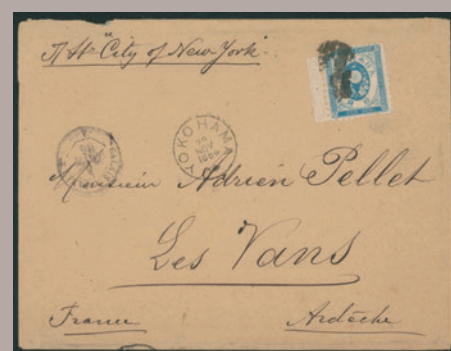 "City of New-York"
YOKOHAMA
NOV
Monsieur Adrien Pellet
Les Vans
France
Ardèche